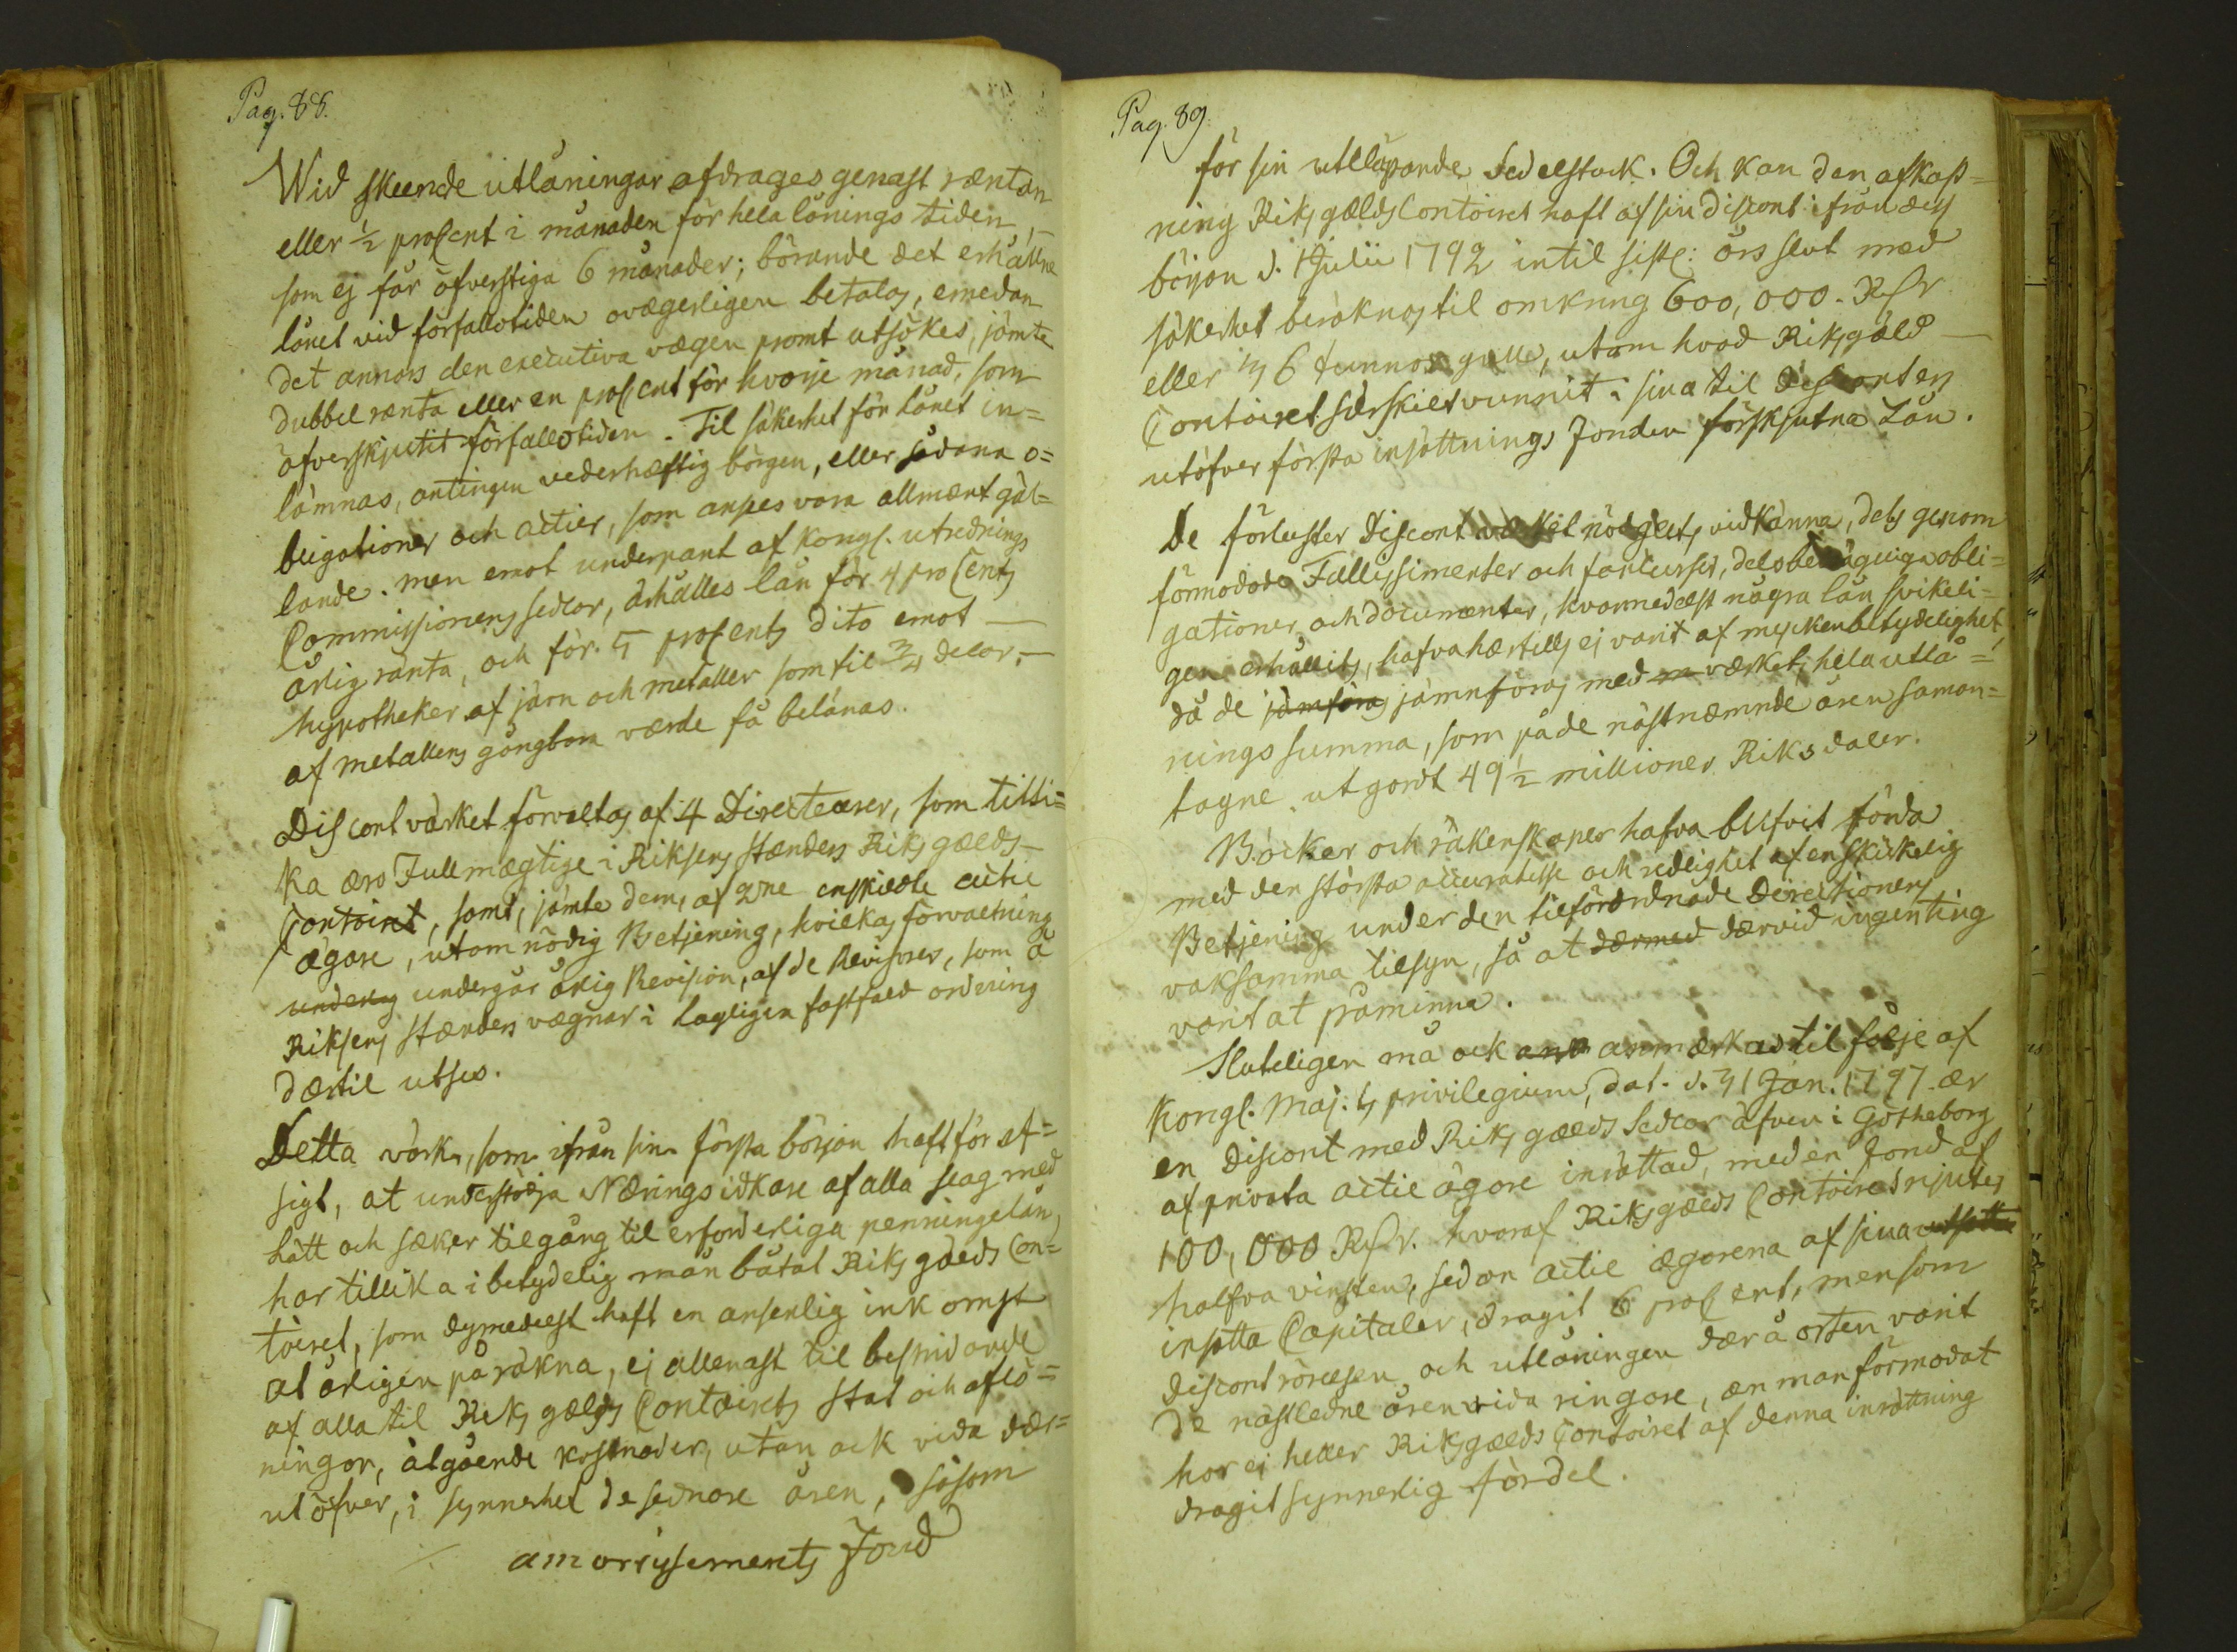 Pag. 88.
Wid skeende utlåningar afdrages genast ræntan
eller ½ proCent i månaden för hela lånings tiden,
som ej får öfverstiga 6 månader; börande det erhållne
lånet vid förfallotiden ovägerligen betalas, emedan
det annars den executiva vægen promt utsökes, jämte
dubbel rænta eller en proCent för hvarje månad, som
öfverskjutit förfallotiden. Til säkerhet för lånet in=
lämnas, antingen vederhæftig borgen, eller sådana o=
bligationer och actier, som anses vara allmænt gäl=
lande. men emot underpant af Kongl. utrednings
Commissionens sedlar, ärhålles lån för 4 proCents
årlig ränta, och för 5 proCents dito emot
hypotheker af järn och metaller som til ¾ delar,
af metallens gångbara værde få belånas.
Discont värket förvaltas af 4 Directeurer, som tilli=
ka æro Fullmægtige i Riksens Stænders Riks gælds
Contoiret, samt, jämte dem, af 2ne enskildte actie
ägare, utom nödig Betjening, hvilkas förvaltning
underg undergår årlig Revision, af de Revisorer, som å
Riksens Stænders vægnar i lagligen fastställd ordning
dærtil utses.
Detta värk, som ifrån sin första början haft för af=
sigt, at understödja Næringsidkare af alla slag med
lätt och sæker tilgång til erforderliga penningelån,
har tillika i betydelig mån båtat Riks gælds Con=
toiret, som dymedelst haft en ansenlig inkomst
at årligen påräkna, ej allenast til bestridande
af alla til Riks gælds Contoirets stat och aflö=
ningar, åtgående kostnader, utan ock vida dær=
utöfver, i synnerhet de sednare åren, såsom
amortissements Fond
Pag. 89.
för sin utelöpande Sedelstock. Och kan den afkast=
ning Riksgælds Contoiret haft af sin discont ifrån dess
början d. 1 Julii 1792 intil sistl: års slut med
säkerhet beräknas til omkring 600,000. Rdr
eller 6 tunnor guld, utom hvad Riksgæld
Contoiret særskilt vunnit i sina til Disconten
utöfver första insättnings Fonden förskjutna Lån.
De förluster Discont værket nödgats vidkänna, dels genom
förmodade Fallissimenter och concurser, dels bedrägliga obli=
gationer och documenter, hvarmedelst några lån svikeli=
gen erhållits, hafva hærtills ej varit af mycken betydelighet
då de jämföras jämnföras med værkets hela utlå=
nings summa, som på de næstnæmnde åren saman=
tagne utgordt 49½ millioner Riksdaler.
Böcker och räkenskaper hafva blifvit förda
med den största accuratesse och redlighet af en skickelig
Betjening under den tilförordnade Directionens
vaksamma tilsyn, så at dærmed dærvid ingenting
varit at påminna.
Sluteligen må ock anmærkas til følje af
Kongl. Maj:ts privilegium, dat. d. 31 Jan. 1797 ær
en Discont med Riks gælds Sedlar äfven i Götheborg
af privata actie ägare inrättad, med en Fond af
100,000 Rdr. hvaraf Riksgælds Contoiret njuter
halfva vinsten, sedan actie ægarena af sina utsatta
insatta Capitaler, dragit 6 proCent, men som
Discont rörelsen och utlåningen dær å orten varit
de næstledne åren vida ringare, æn man förmodat
har ej heller Riksgælds Contoiret af denna inrättning
dragit synnerlig fördel.